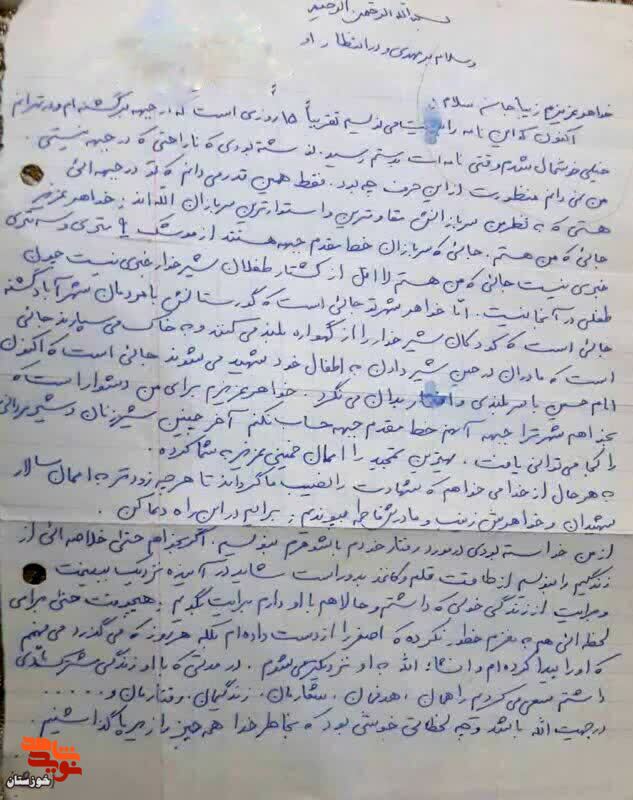 بسم الله الرحمن الرحیم
و سلام بر مهدی و در انتظار او
خواهر عزیزم زیبا جان سلام:
اکنون که این نامه را برایت می نویسم تقریباً ۱۵ روزی است که از جبهه برگشته ام و در تهرانم
خیلی خوشحال شدم وقتی نامه ات بدستم رسید. نوشته بودی که ناراحتی که در جبهه نیستی.
من نمی دانم منظورت از این حرف چه بود. فقط همین قدر می دانم که تو در جبهه ائی
هستی که به نظر من سربازانش مقاومترین و استوارترین سربازان الله اند. خواهر عزیز
جائی که من هستم. جائی که سربازان خط مقدم جبهه هستند از موشک ۹ متری و سه متری
خبری نیست جائی که من هستم لااقل از کشتار طفلان شیرخوار خبری نیست چون
طفلی در آنجا نیست. امّا خواهر شهر تو جائی است که گورستانش با مردمان شهر آباد گشته
جائی است که کودکان شیرخوار را از گهواره بلند می کنند و به خاک می سپارند جائی
است که مادران در حین شیر دادن به اطفال خود شهید می شوند جائی است که اکنون
امام حسین با سربلندی و افتخار بدان می نگرد. خواهر عزیزم برای من دشوار است که
بخواهم شهر ترا جبهه آنهم خط مقدم جبهه حساب نکنم آخر چنین شیرزنان و شیرمردانی
را کجا می توان یافت. بهترین تمجید را امام خمینی عزیز به شما کرده.
به هر حال از خدا می خواهم که شهادت را نصیب ما گرداند تا هر چه زودتر به امام سالار
شهیدان و خواهرش زینب و مادرش فاطمه بپیوندیم. برایم در این راه دعا کن.
از من خواسته بودی در مورد رفتار خودم با شوهرم بنویسم. اگر بخواهم حتی خلاصه ائی از
زندگیم را بنویسم از طاقت قلم و کاغذ بدور است شاید در آینده نزدیک ببینمت
و برایت از زندگی خوبی که داشتم و حالا هم با او دارم برایت بگویم. هیچوقت حتی برای
لحظه ائی هم به مغزم خطور نکرده که اصغر را از دست داده ام بلکه هر روز که می گذرد می فهمم
که او را پیدا کرده ام و انشاء الله به او نزدیکتر می شوم. در مدتی که با او زندگی مشترکی
داشتم سعی می کردم راهمان، هدفمان، شعارمان، زندگیمان، رفتارمان و .....
در جهت الله باشد و چه لحظاتی خوشی بود که بخاطر خدا همه چیز را زیر پا گذاشتیم.
نوید شاهد
خوزستان